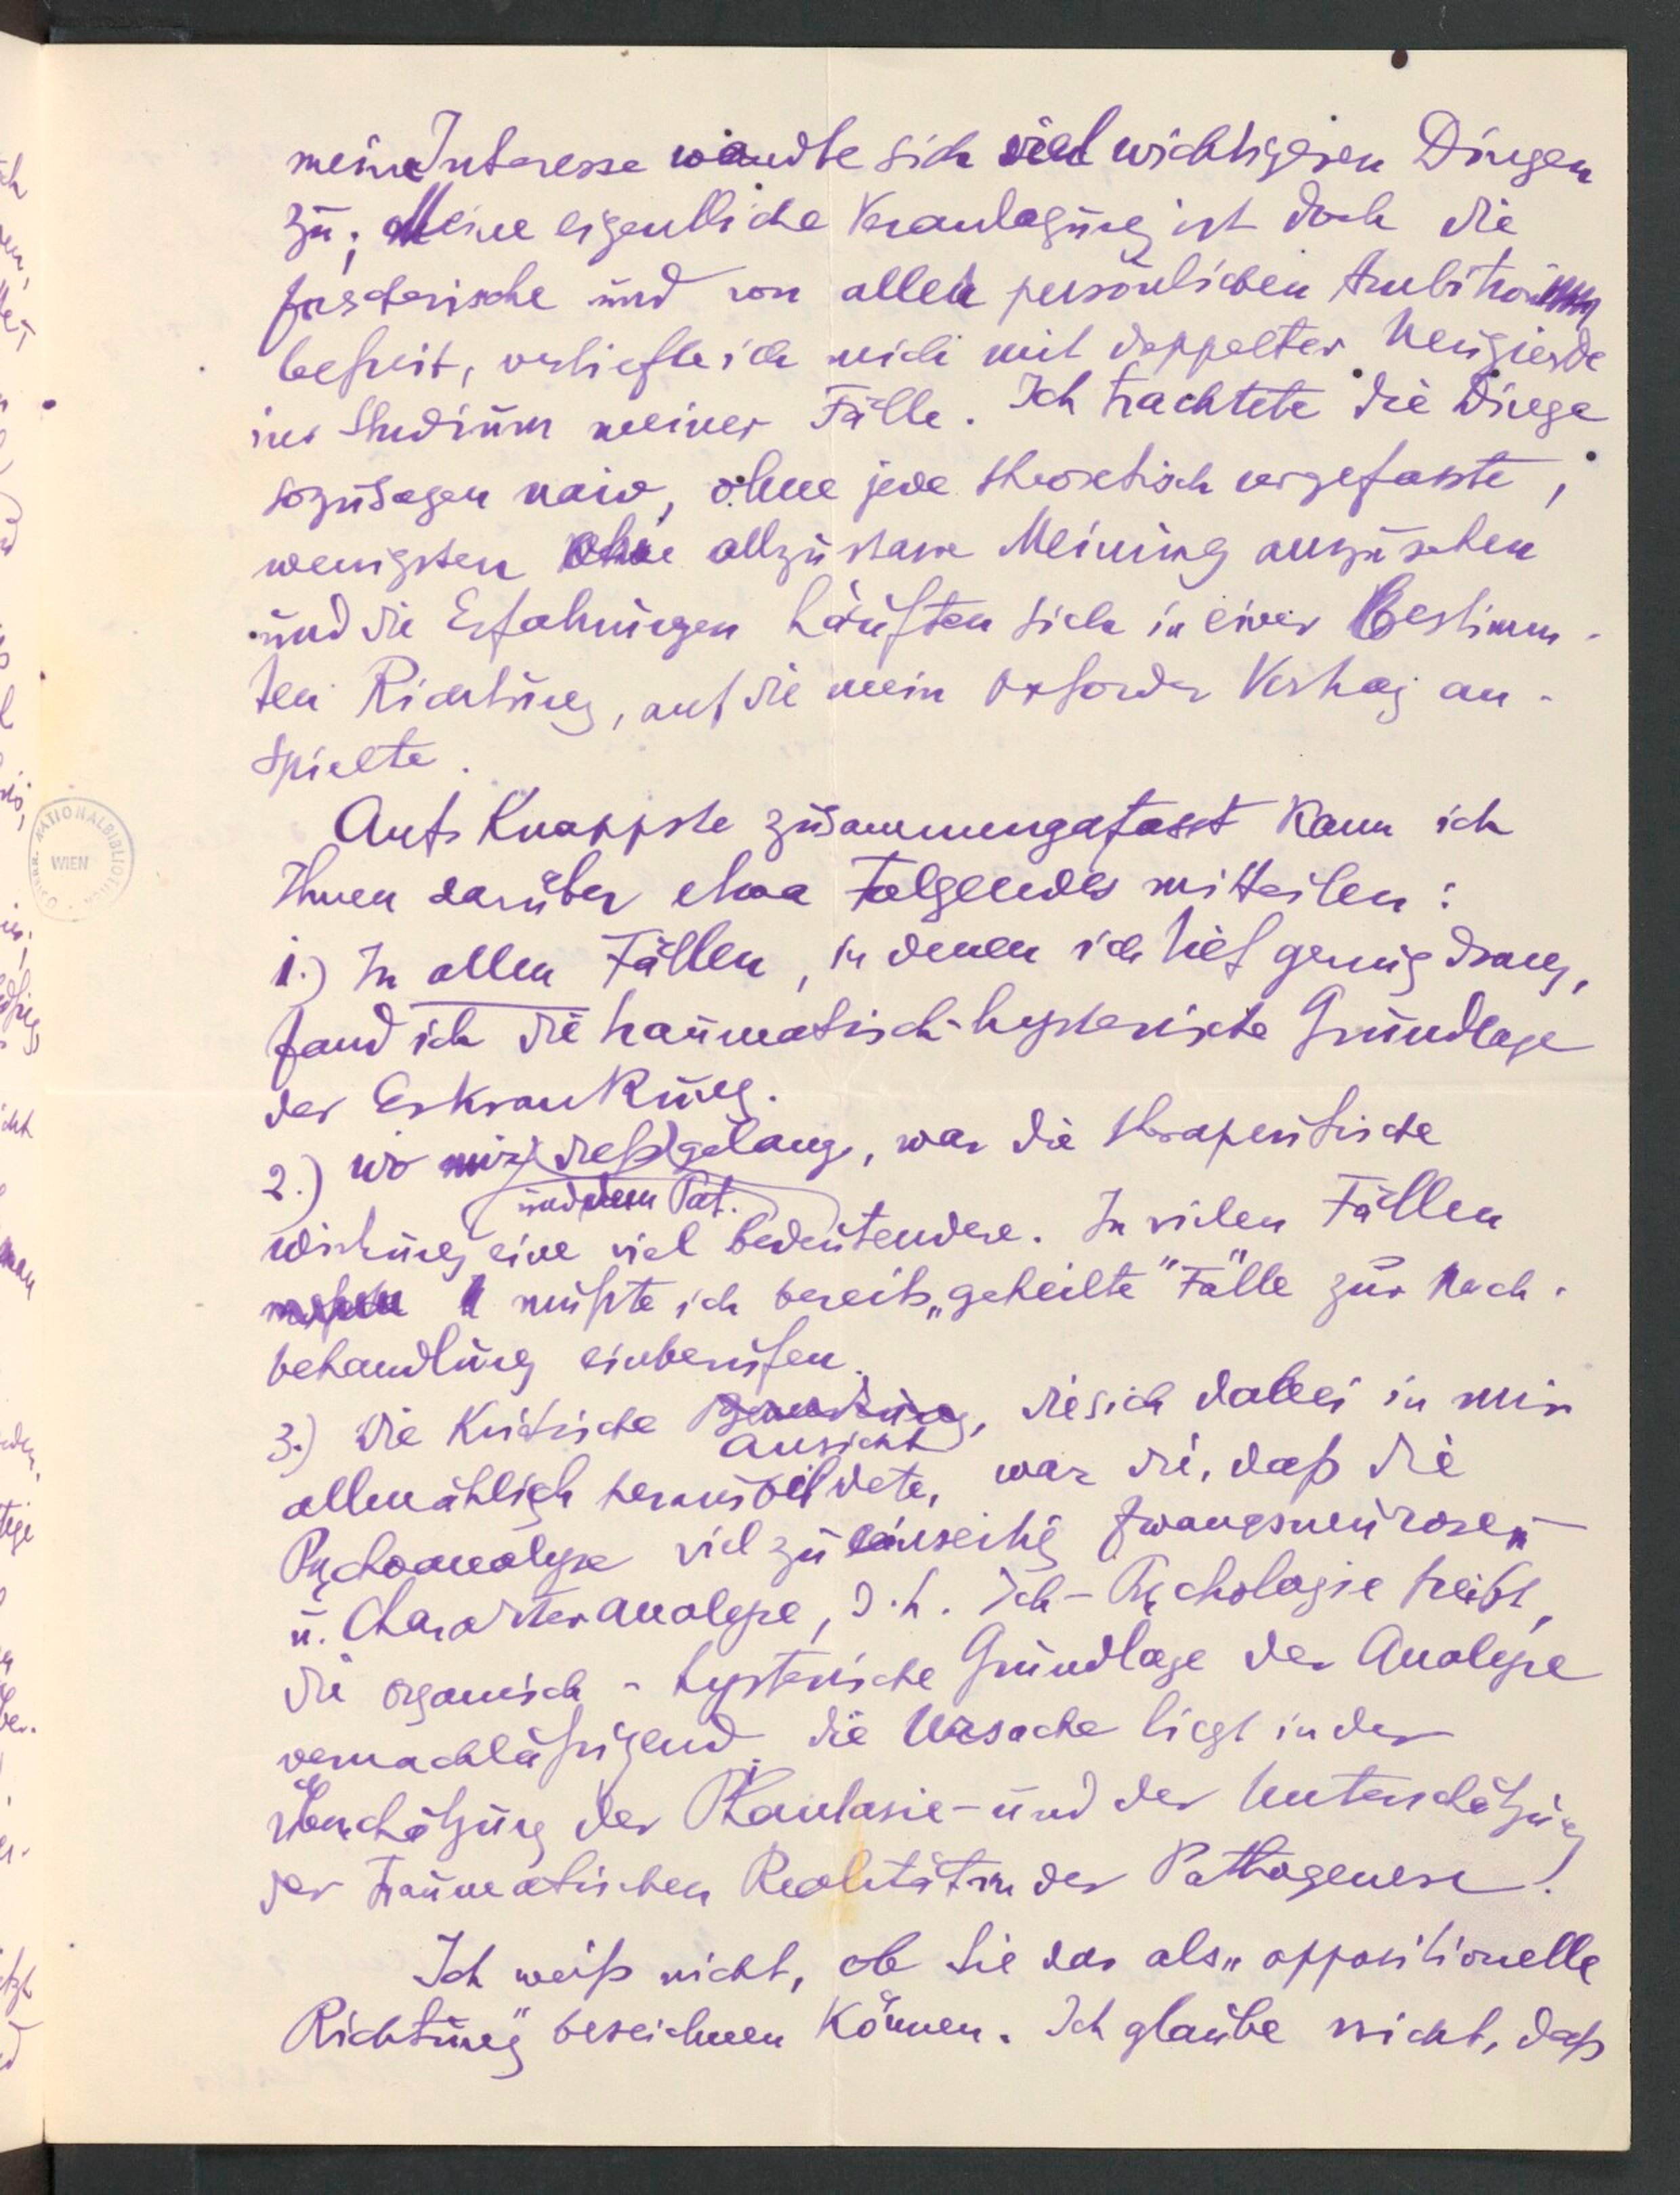 mein Interesse wandte sich viel wichtigeren Dingen
zu; Meine eigentliche Veranlagung ist doch die
forscherische und von allen persönlichen Ambitionen
befreit, vertiefte ich mich mit doppelter Neugierde
ins Studium meiner Fälle. Ich trachtete die Dinge
sozusagen naiv, ohne jede theoretisch vorgefasste,
wenigsten ohne allzustarre Meinung anzusehen
und die Erfahrungen häuften sich in einer bestimm-
ten Richtung, auf die mein Oxforder Vortrag an-
spielte.
Aufs Knappste zusammengefasst kann ich
Ihnen darüber etwa Folgendes mitteilen:
1.) In allen Fällen, in denen ich tief genug drang,
fand ich die traumatisch-hysterische Grundlage
der Erkrankung.
2.) wo mir dieß gelang, war die therapeutische
und dem Pat.
Wirkung eine viel bedeutendere. In vielen Fällen
mußte ich bereits „geheilte" Fälle zur Nach-
behandlung einberufen.
3.) Die Kritische , die sich dabei in mir
Ansicht
allmählich herausbildete, war die, daß die
Psychoanalyse viel zu einseitig Zwangsneurosen-
u. Charakteranalyse, d.h. Ich-Psychologie treibt,
die organisch-hysterische Grundlage der Analyse
vernachläßigend; die Ursache liegt in der
Überschätzung der Phantasie- und der Unterschätzung
der traumatischen Realität in der Pathogenese!
Ich weiß nicht, ob Sie das als „oppositionelle
Richtung" bezeichnen können. Ich glaube nicht, daß
ÖSTERR. NATIONALBIBLIOTHEK
WIEN